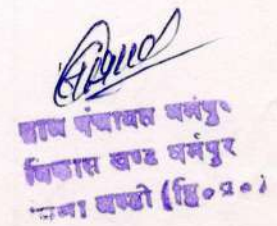 ग्राम पंचायत धर्मपुर
विकास खण्ड धर्मपुर
मण्डी (हि०प्र०)